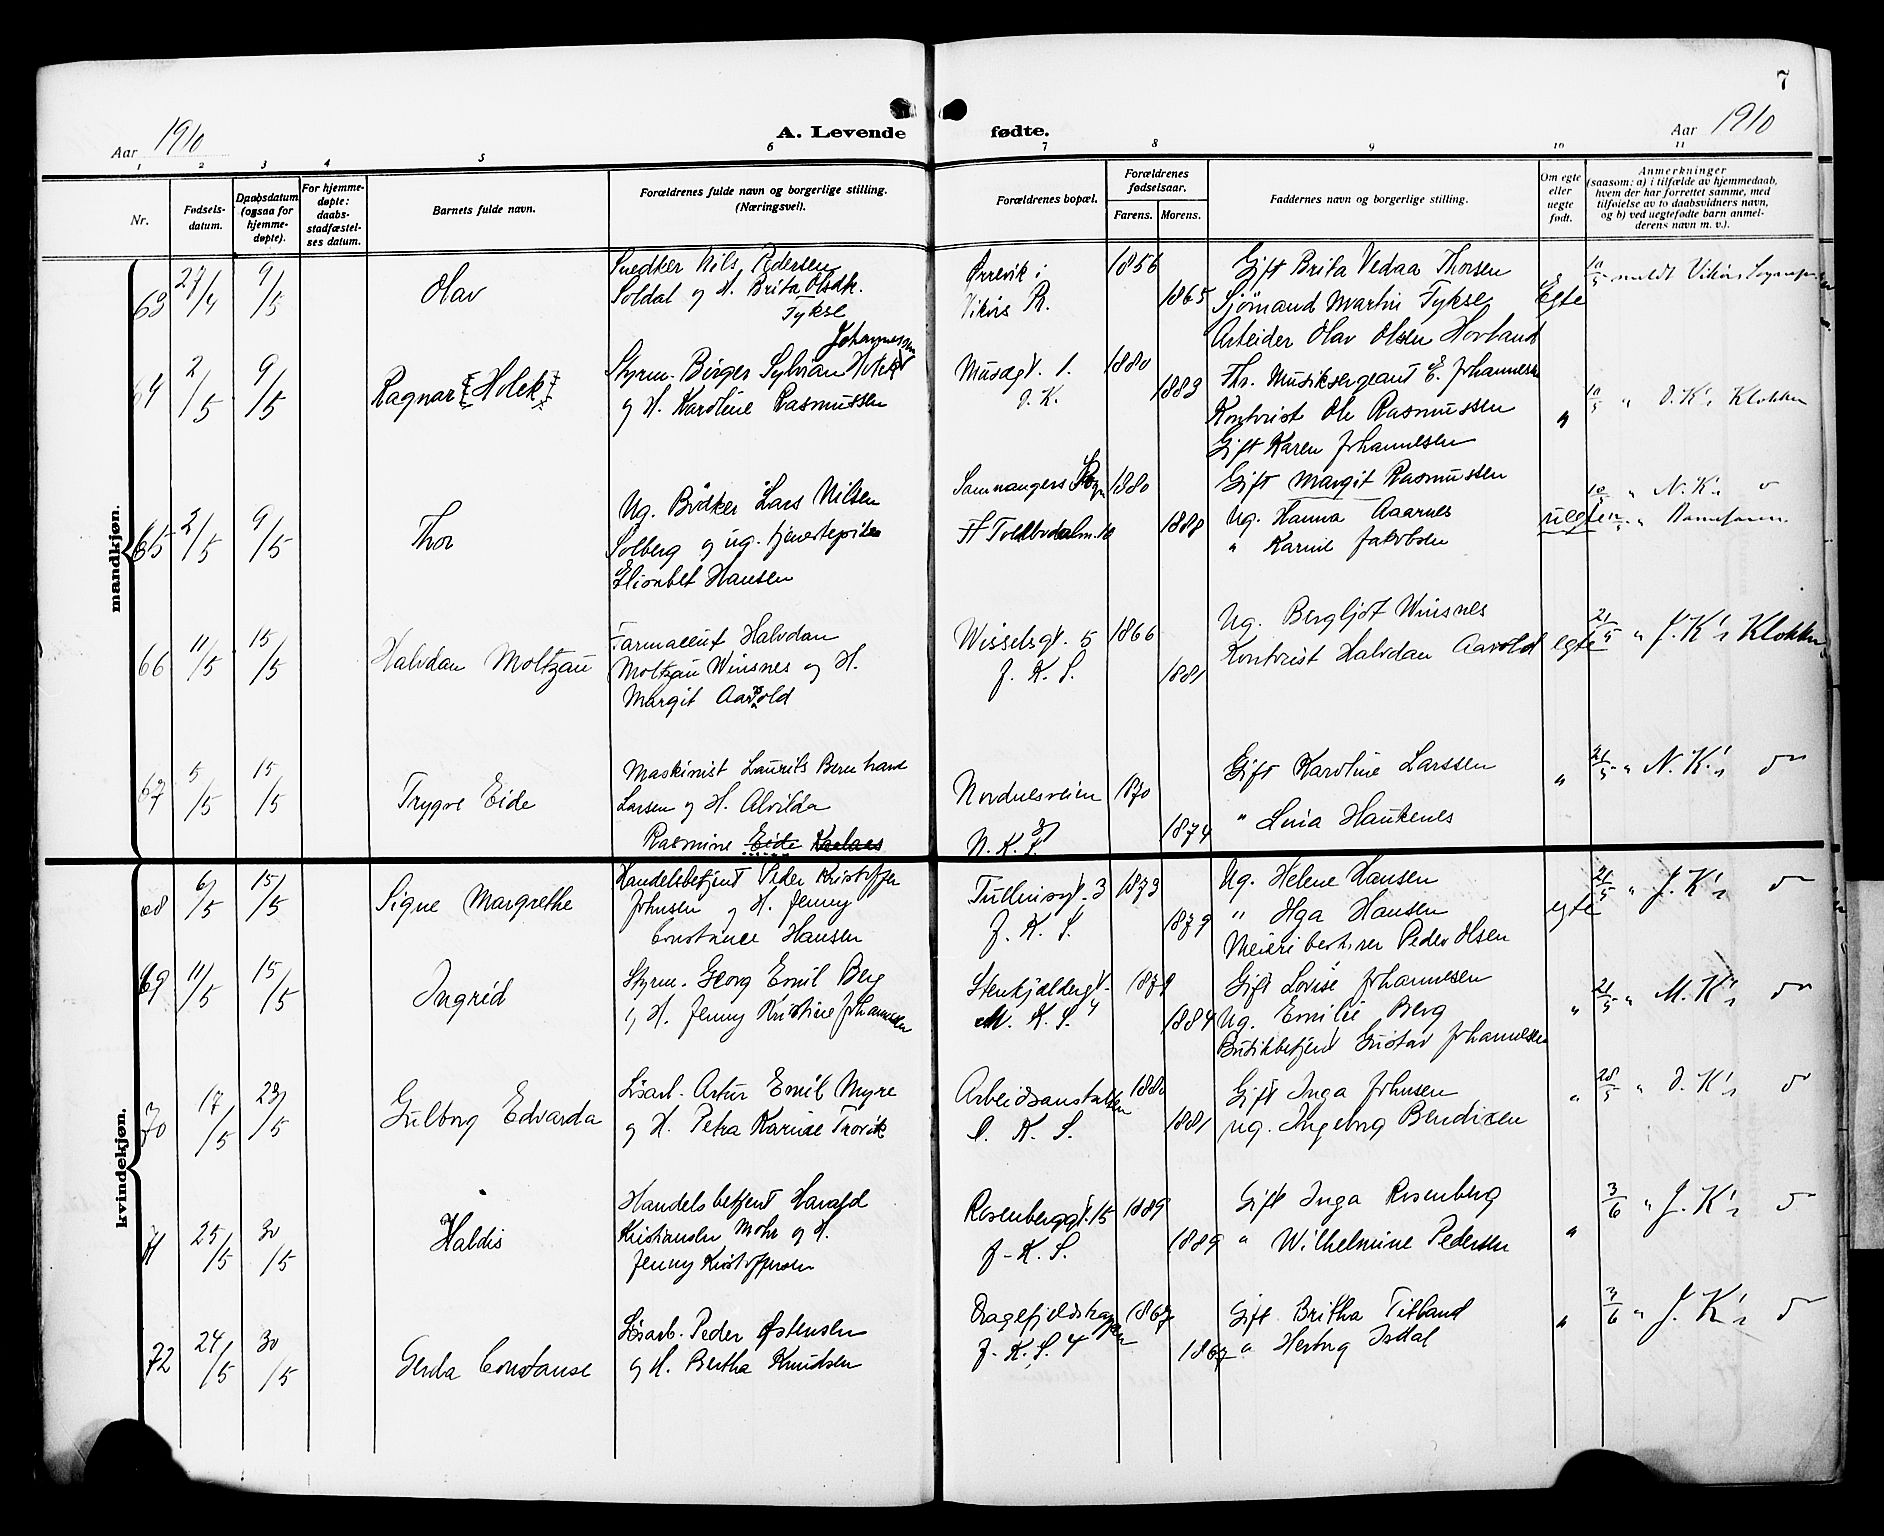 7
Aar 1910
A. Levende fødte.
Aar 1910
1 2 3 4 5 6 7 8 9 10 11
Nr.
Fødsels-
datum.
Daabsdatum
(ogsaa for
hjemme-
døpte).
For hjemme-
døpte:
daabs-
stadfæstel-
ses datum.
Barnets fulde navn.
Forældrenes fulde navn og borgerlige stilling.
(Næringsvei).
Forældrenes bopæl.
Forældrenes
fødselsaar.
Farens. Morens.
Faddernes navn og borgerlige stilling.
Om egte
eller
uegte
født.
Anmerkninger
(saasom: a) i tilfælde av hjemmedaab,
hvem der har forrettet samme, med
tilføielse av to daabsvidners navn,
og b) ved uegtefødte barn anmel-
derens navn m. v.).
mandkjøn.
63 27/4 9/5
Olav
Snedker Nils Pedersen
Soldal og H. Brita Olsdtr.
Tykse
Ørrevik i
Vikørs
1856
1865
Gift Brita Vedaa Thorsen
Sjömand Martin Tykse
Arbeider Olav Olsen Hovland
Egte
10/5 meldt Vikørs
64 2/5 9/5
Ragnar [Holck]
Johannessen
Styrm. Birger Sylvian Holck
og H. Karoline Rasmussen
Musægt. 1.
D. K.
1880
1883
Fhv. Musiksergeant E. Johannessen
Kontorist Ole Rasmussen
Gift Karen Johannesen
"
10/5 " D. K's Klokker
65 2/5 9/5
Thor
Ug. Bödker Lars Nilsen
Solberg og ug. tjenestepike
Elisabet Hansen
Samnangers Sogn
Toldbodalm. 10
1880
1888
Gift Margit Rasmussen
Ug. Hanna Aarnes
" Karine Jakobsen
uegte
10/5 " N. K's "
" Barnefaren
66 11/5 15/5
Halvdan Moltzau
Farmaceut Halvdan
Moltzau Winsnes og H.
Margit Aarvold
Wesselsgt. 5
J. K. S.
1866
1881
Ug. Bergljot Winsnes
Kontorist Halvdan Aarvold
egte
21/5 " J. K's Klokker
67 5/5 15/5
Trygve Eide
Maskinist Laurits Bernhard
Larsen og H. Alvilda
Rasmine Eide
Nordnesveien
N. K. S.
1870
1874
Gift Karoline Larssen
" Lina Haukenes
"
21/5 " N. K's do
kvindekjøn.
68 6/5 15/5
Signe Margrethe
Handelsbetjent Peder Kristoffer
Johnsen og H. Jenny
Constance Hansen
Tullinsgt. 3
J. K. S.
1873
1879
Ug. Helene Hansen
" Olga Hansen
Meieribestyrer Peder Olsen
egte
21/5 " J. K's do
69 11/5 15/5
Ingrid
Styrm. Georg Emil Berg
og H. Jenny Kristine Johannessen
Stenkjældergt.
M. K. S.
1879
1884
Gift Lovise Johannesen
Ug. Emilie Berg
Butikbetjent Gustav Johannessen
"
21/5 " M. K's do
70 17/5 23/5
Gulborg Edvarda
Lösarb. Artur Emil Myre
og H. Petra Karine Trovik
Arbeidsanstalten
D. K. S.
1880
1881
Gift Inga Johnsen
ug. Ingeborg Bendixen
"
28/5 " D. K's do
71 25/5 30/5
Haldis
Handelsbetjent Harald
Kristiansen Mohr og H.
Jenny Kristoffersen
Rosenberggt. 15
J. K. S.
1889
1889
Gift Inga Rosenberg
" Wilhelmine Pedersen
"
3/6 " J. K's do
72 24/5 30/5
Gerda Constanse
Lösarb. Peder Østensen
og H. Bertha Knudsen
Dragefjeldstrappen
J. K. S. 4
1867
1867
Gift Britha Titland
" Herborg Isdal
"
3/6 " J. K's do